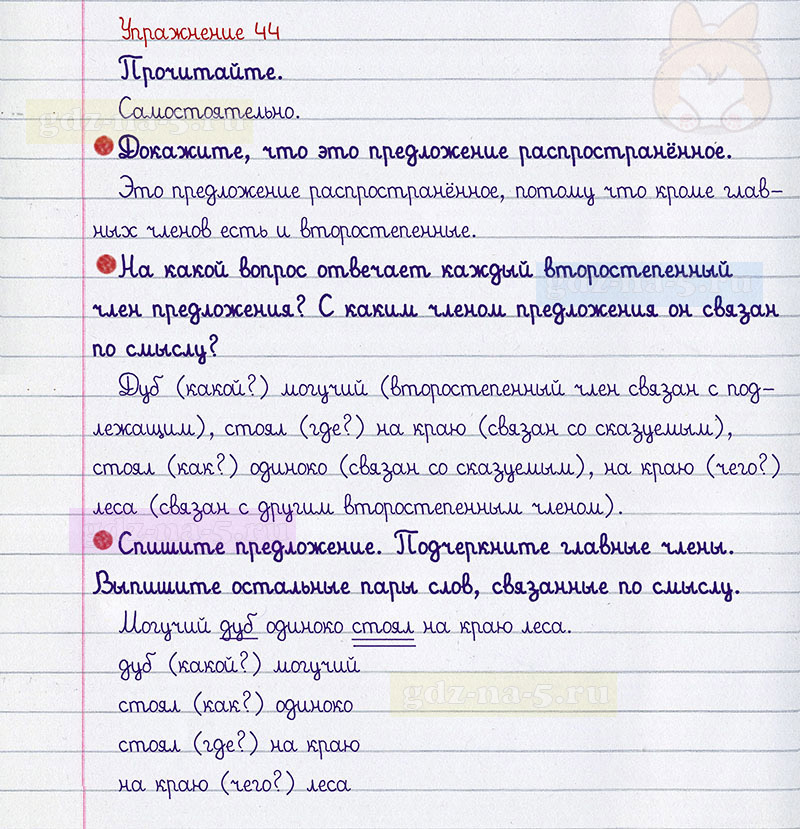 Упражнение 44
Прочитайте.
Самостоятельно.
gdz-na-5.ru
Докажите, что это предложение распространённое.
Это предложение распространённое, потому что кроме глав-
ных членов есть и второстепенные.
На какой вопрос отвечает каждый второстепенный
gdz-na-5.ru
член предложения? С каким членом предложения он связан
по смыслу?
Дуб (какой?) могучий (второстепенный член связан с под-
лежащим), стоял (где?) на краю (связан со сказуемым),
стоял (как?) одиноко (связан со сказуемым), на краю (чего?)
леса (связан с другим второстепенным членом).
gdz-na-5.ru
Спишите предложение. Подчеркните главные члены.
Выпишите остальные пары слов, связанные по смыслу.
Могучий дуб одиноко стоял на краю леса.
дуб (какой?) могучий
стоял (как?) одиноко
gdz-na-5.ru
стоял (где?) на краю
на краю (чего?) леса